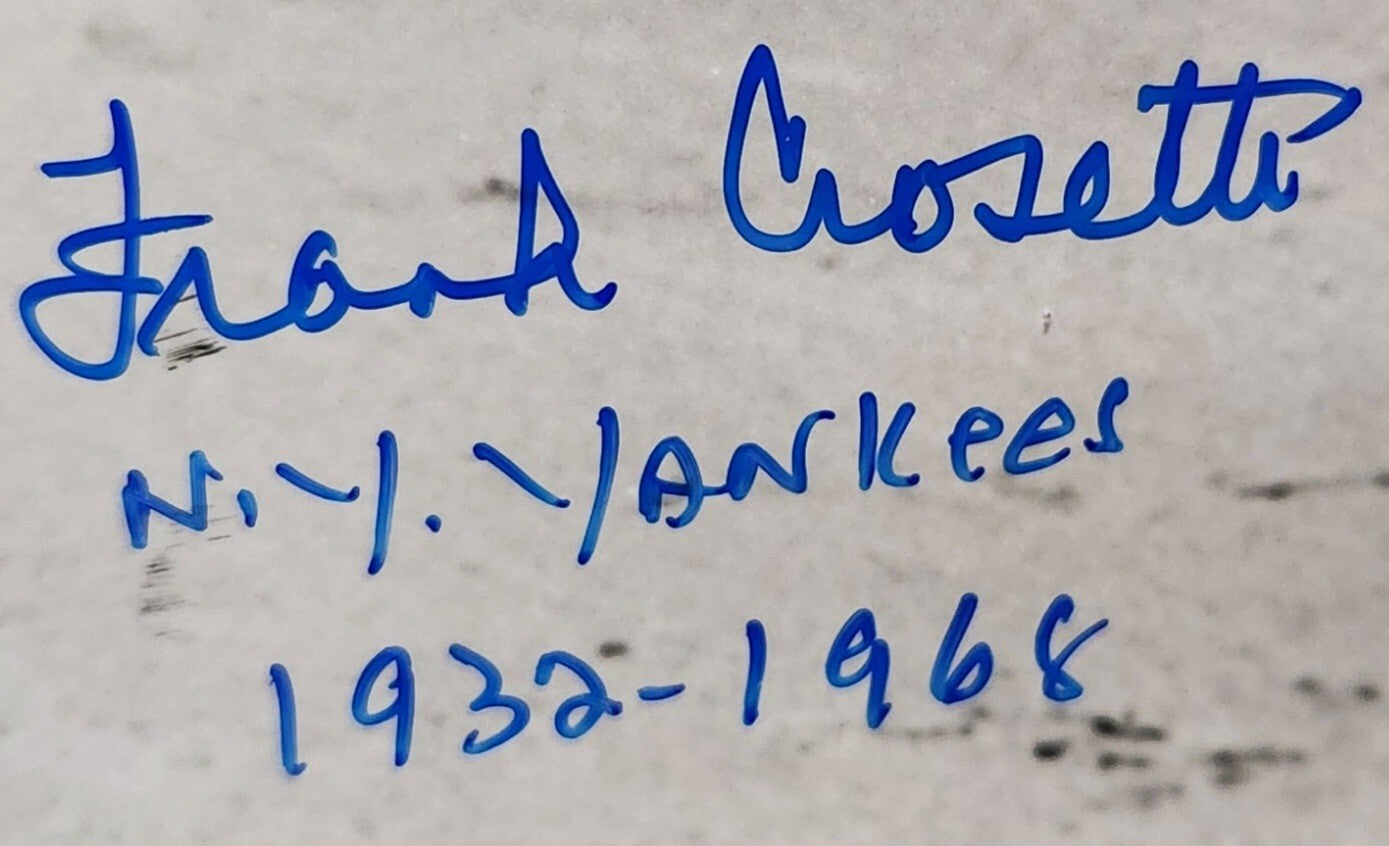 Frank Crosetti
N.Y. YANKees
1932-1968